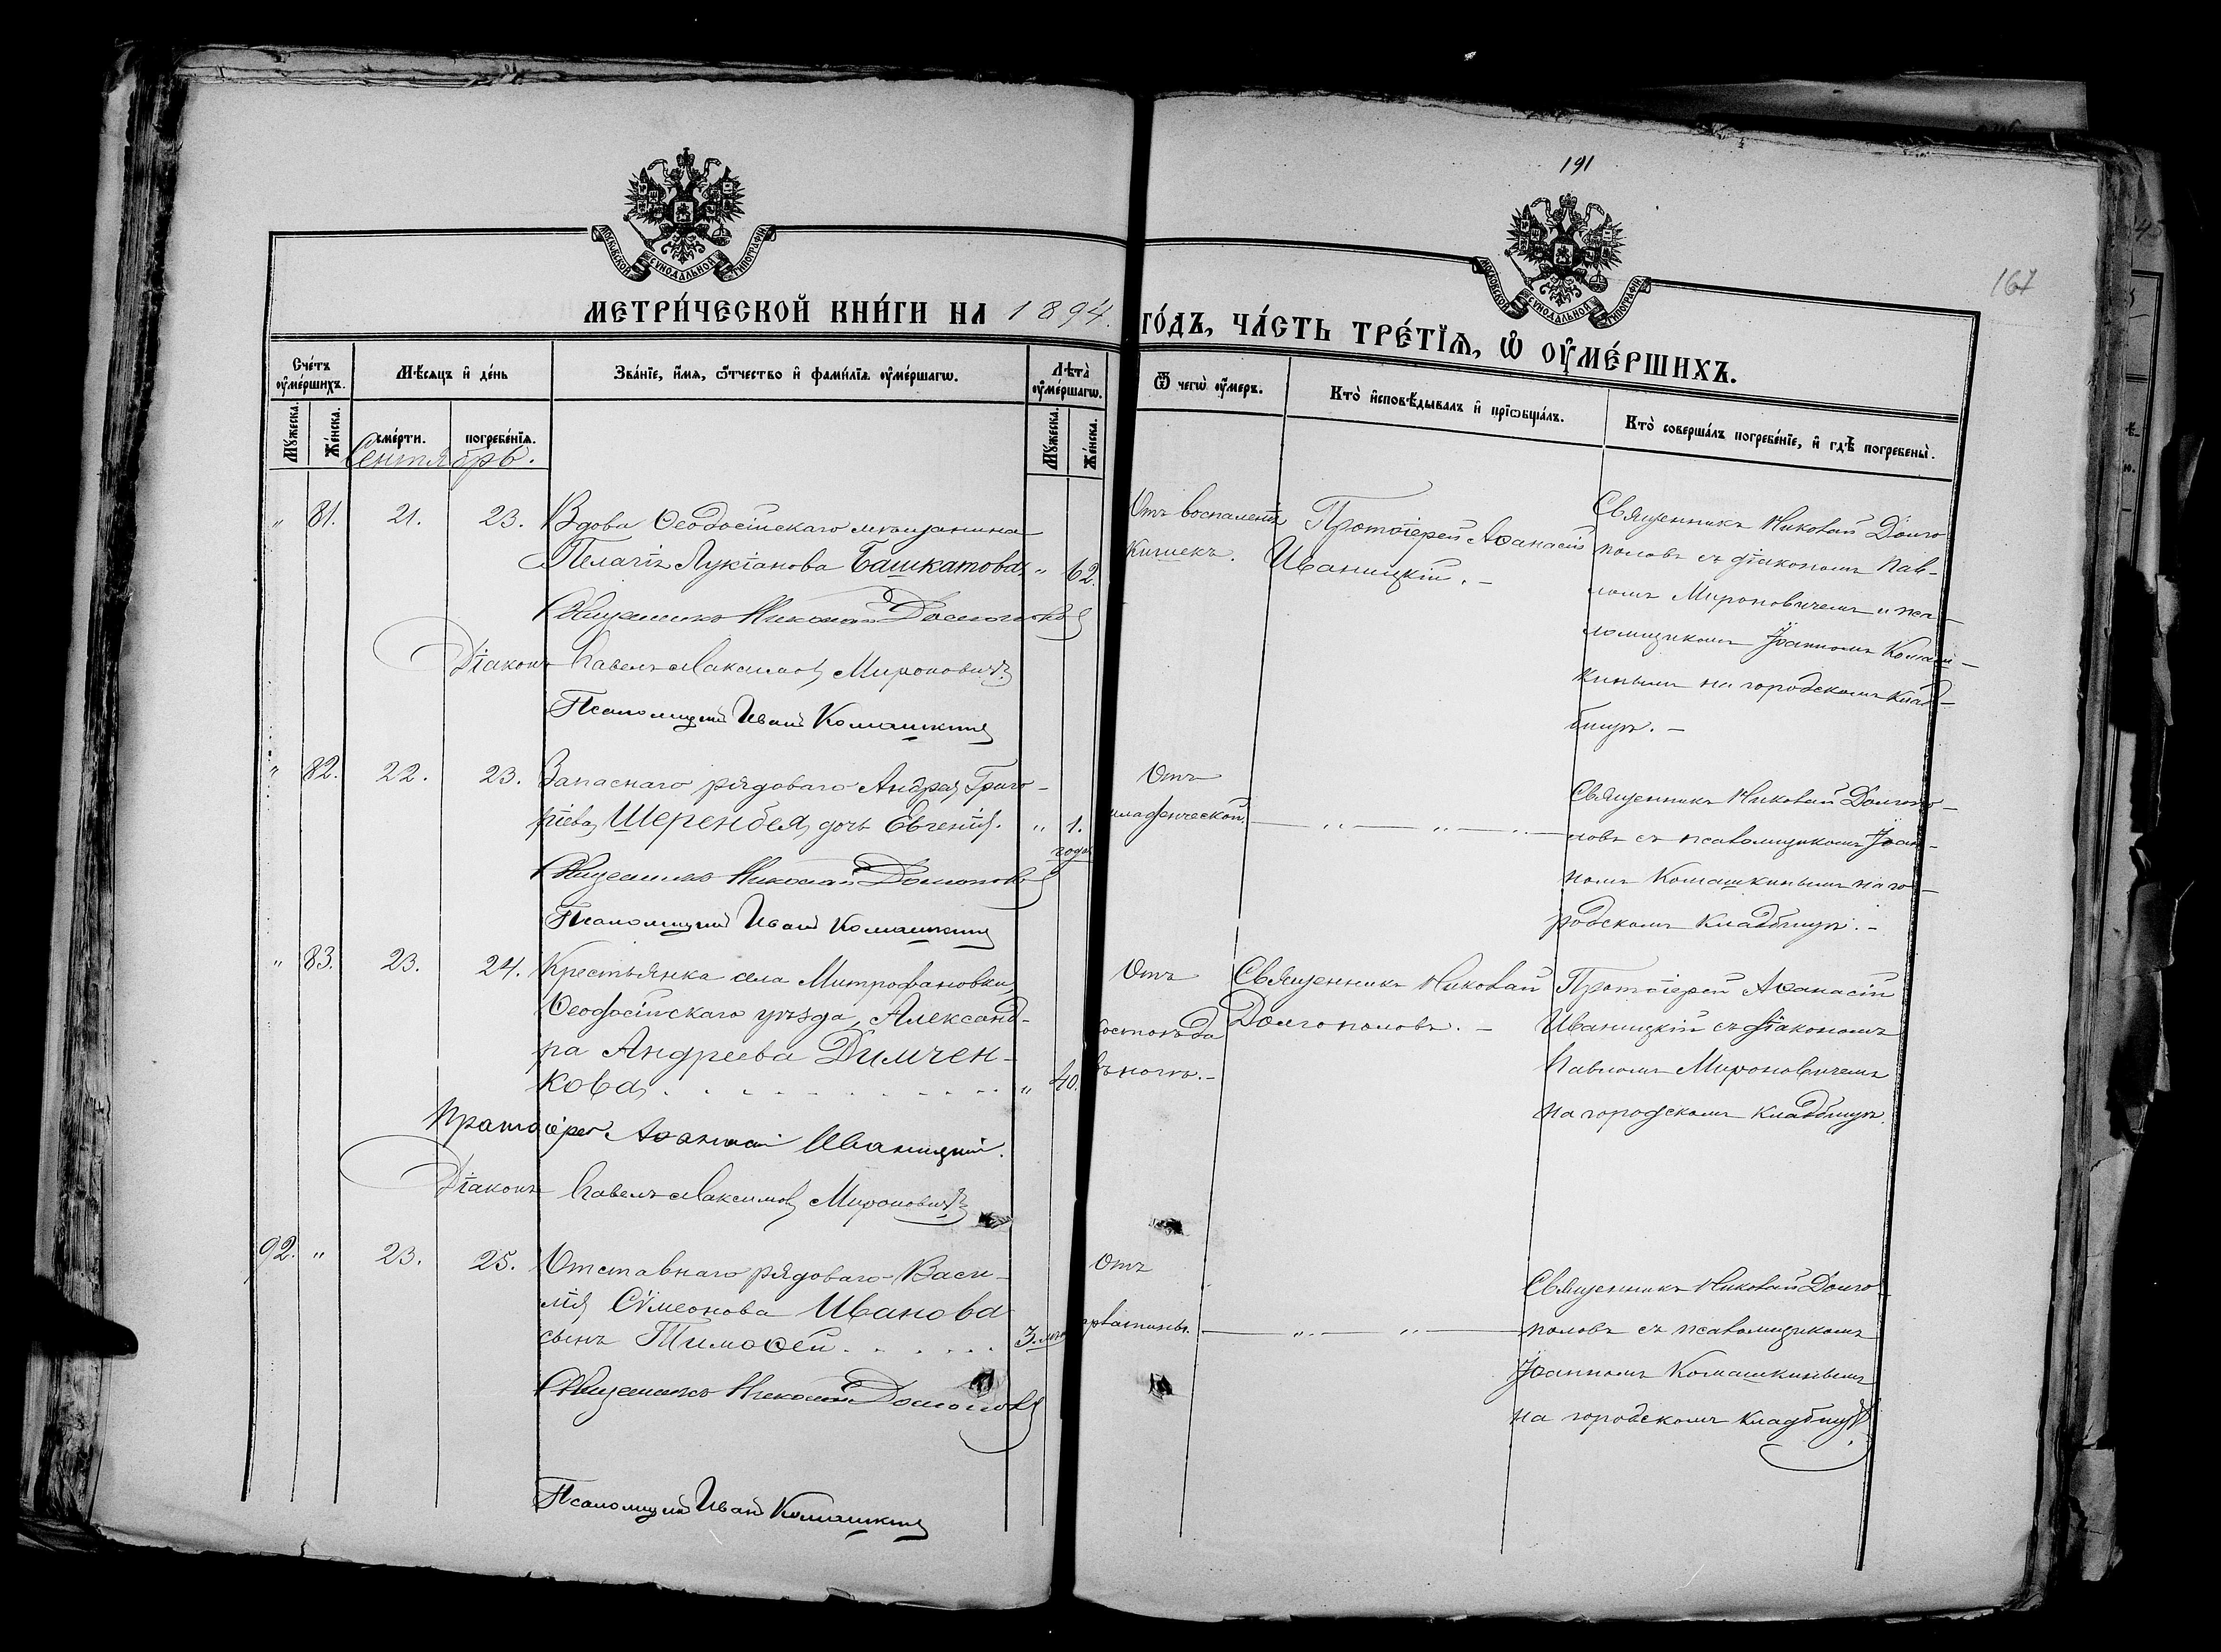 191
167
МОСКОВСКОЙ СѴНОДАЛЬНОЙ ТИПОГРАФІИ
МОСКОВСКОЙ СѴНОДАЛЬНОЙ ТИПОГРАФІИ
МЕТРИ́ЧЕСКОЙ КНИ́ГИ НА 1894.
ГО́ДЪ, ЧА́СТЬ ТРЕ́ТЇѦ, Ѡ҆ ОУ҆МЕ́РШИХЪ.
Сче́тъ оу҆ме́ршихъ.
Мѣ́сяцъ и҆ де́нь
Зва́нїе, и҆́мѧ, ѻ҆́тчество и҆ фами́лїѧ оу҆ме́ршагѡ.
Лѣ́та оу҆ме́ршагѡ.
Ѿ чегѡ̀ оу҆́меръ.
Кто̀ и҆сповѣ́дывалъ и҆ прїѡбща́лъ.
Кто̀ соверша́лъ погребе́нїе, и҆ гдѣ̀ погребены̀.
Мꙋ́жеска.
Же́нска.
сме́рти.
погребе́нїѧ.
Мꙋ́жеска.
Же́нска.
Сентябрь.
" 81. 21. 23. Вдова Ѳеодосійскаго мѣщанина
Пелагія Лукіанова Башкатова, " 62.
Священникъ Николай Долгополовъ
Діаконъ Павелъ Максимовъ Мироновичъ
Псаломщикъ Иванъ Комашкинъ
Отъ воспаленія
кишекъ.
Протоіерей Аѳанасій
Иваницкій. –
Священникъ Николай Долго
половъ съ діакономъ Пав-
ломъ Мироновичемъ и пса-
ломщикомъ Іоанномъ Комаш-
кинымъ на городскомъ клад-
бищѣ. –
" 82. 22. 23. Запаснаго рядоваго Андрея Григо-
ріева Шеренбея, дочь Евгенія. " 1.
года
Священникъ Николай Долгополовъ
Псаломщикъ Иванъ Комашкинъ
Отъ
младенческой.
Священникъ Николай Долгопо-
ловъ съ псаломщикомъ Іоан-
номъ Комашкинымъ на го-
родскомъ кладбищѣ. –
" 83. 23. 24. Крестьянка села Митрофановки,
Ѳеодосійскаго уѣзда, Александ-
ра Андреева Димчен-
кова, . . . . " 40.
Протоіерей Аѳанасій Иваницкій.
Діаконъ Павелъ Максимовъ Мироновичъ
Отъ
костоѣда
въ ногѣ. –
Священникъ Николай
Долгополовъ. –
Протоіерей Аѳанасій
Иваницкій съ діакономъ
Павломъ Мироновичемъ
на городскомъ кладбищѣ.
92. " 23. 25. Отставнаго рядоваго Васи-
лія Сѵмеонова Иванова
сынъ Тимоѳей. . . . . 3.
Священникъ Николай Долгополовъ
Псаломщикъ Иванъ Комашкинъ
Отъ
Священникъ Николай Долго
половъ съ псаломщикомъ
Іоанномъ Комашкинымъ
на городскомъ кладбищѣ.